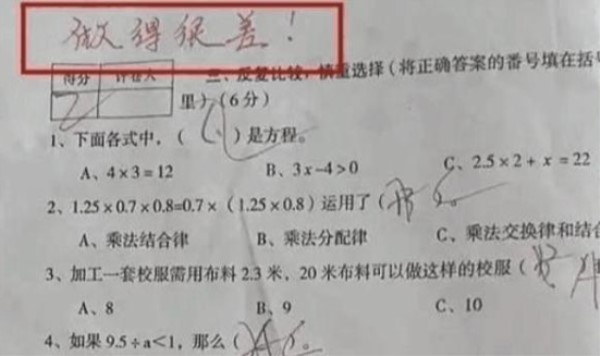 做得很差！
得分 评卷人 三、反复比较，慎重选择（将正确答案的番号填在括号
2 里）（6分）
1、下面各式中，（ ）是方程。
A、4×3=12 B、3x-4>0 C、2.5×2+x=22
2、1.25×0.7×0.8=0.7×（1.25×0.8）运用了（
A、乘法结合律 B、乘法分配律 C、乘法交换律和结合
3、加工一套校服需用布料2.3米，20米布料可以做这样的校服（
A、8 B、9 C、10
4、如果9.5÷a<1，那么（